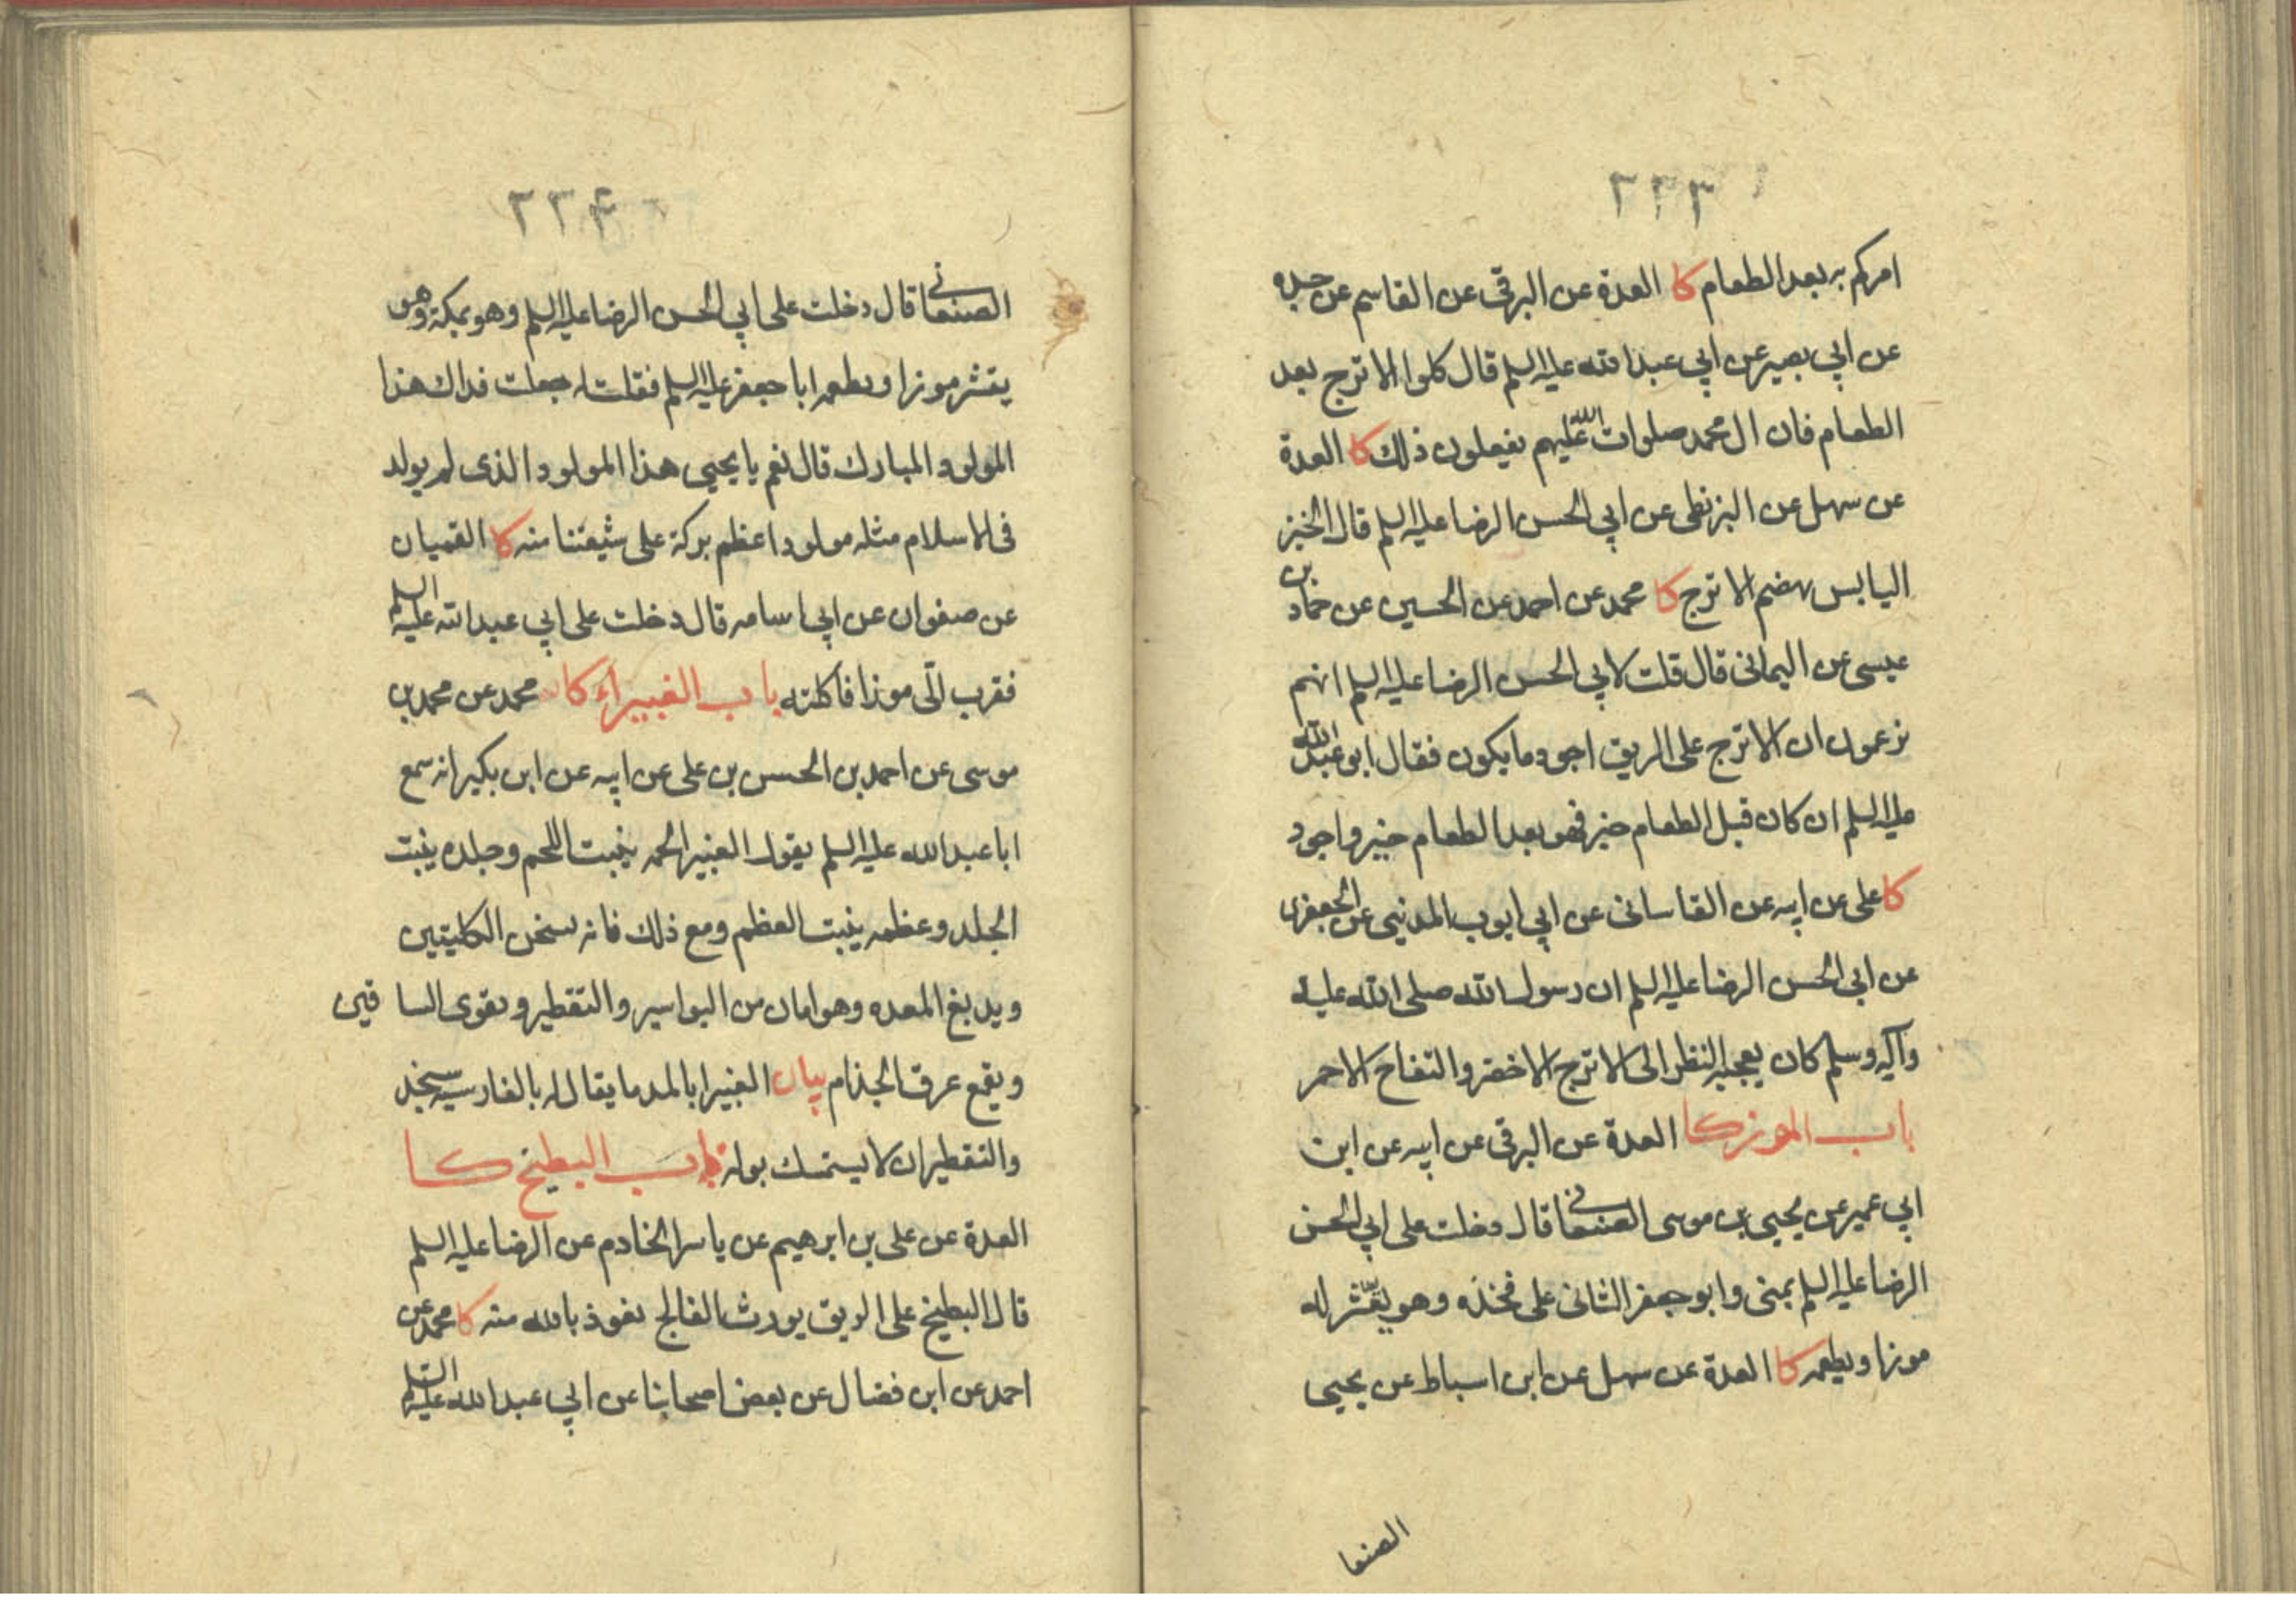 ٢٢٣
امركم به بعد الطعام كا العدة عن البرقى عن القاسم عن جده
عن ابي بصير عن ابي عبدالله عليه السلم قال كلوا الاترج بعد
الطعام فان ال محمد صلوات الله عليهم يفعلون ذلك كا العدة
عن سهل عن البزنطى عن ابي الحسن الرضا عليه السلم قال الخبز
اليابس يهضم الاترج كا محمد عن احمد عن الحسين عن حماد بن
عيسى عن اليمانى قال قلت لابي الحسن الرضا عليه السلم انهم
يزعمون ان الاترج على الريق اجود ما يكون فقال ابو عبد الله
عليه السلم ان كان قبل الطعام خير فهو بعد الطعام خير واجود
كا على عن ابيه عن القاسانى عن ابي ايوب المدينى عن الجعفرى
عن ابي الحسن الرضا عليه السلم ان رسول الله صلى الله عليه
وآله وسلم كان يعجبه النظر الى الاترج الاخضر والتفاح الاحمر
باب الموز كا العدة عن البرقى عن ابيه عن ابن
ابي عمير عن يحيى بن موسى الصنعانى قال دخلت على ابي الحسن
الرضا عليه السلم بمنى وابو جعفر الثانى على فخذه وهو يقشر له
موزا ويطعمه كا العدة عن سهل عن ابن اسباط عن يحيى
الصنعا
٢٢٤
الصنعانى قال دخلت على ابي الحسن الرضا عليه السلم وهو بمكة وهو
يقشر موزا ويطعمه ابا جعفر عليه السلم فقلت له جعلت فداك هذا
المولود المبارك قال نعم يا يحيى هذا المولود الذى لم يولد
فى الاسلام مثله مولود اعظم بركة على شيعتنا منه كا القميان
عن صفوان عن ابي اسامه قال دخلت على ابي عبدالله عليه السلم
فقرب الىّ موزا فاكلته باب الغبيراء كا محمد عن محمد بن
موسى عن احمد بن الحسن بن على عن ابيه عن ابن بكير انه سمع
ابا عبدالله عليه السلم يقول الغبيرا لحمه ينبت اللحم وجلده ينبت
الجلد وعظمه ينبت العظم ومع ذلك فانه يسخن الكليتين
ويدبغ المعده وهو امان من البواسير والتقطير ويقوى الساقين
ويقمع عرق الجذام بيان الغبيرا بالمد ما يقال له بالفارسيه سنجد
والتقطير ان لا يستمسك بوله باب البطيخ كا
العدة عن على بن ابرهيم عن ياسر الخادم عن الرضا عليه السلم
قال البطيخ على الريق يورث الفالج نعوذ بالله منه كا محمد عن
احمد عن ابن فضال عن بعض اصحابنا عن ابي عبدالله عليه السلم